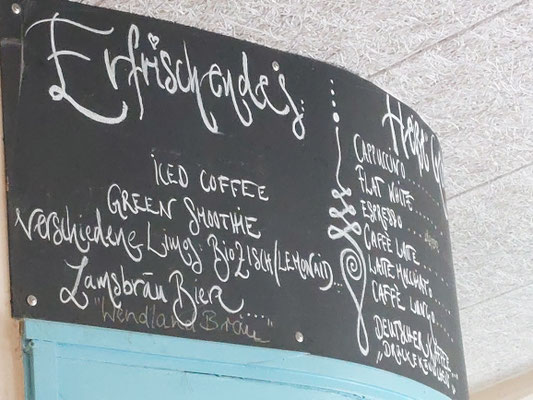 Erfrischendes...
ICED COFFEE
GREEN SMOOTHIE
Verschiedene Limos: BIOZISCH/LEMONAID...
Lamsbräu Bier....
"Wendland Bräu"
CAPPUCCINO....
FLAT WHITE...
ESPRESSO
CAFFÈ LATTE....
LATTE MACCHIATO..
CAFFÈ LUNGO...
DEUTSCHER KAFFEE